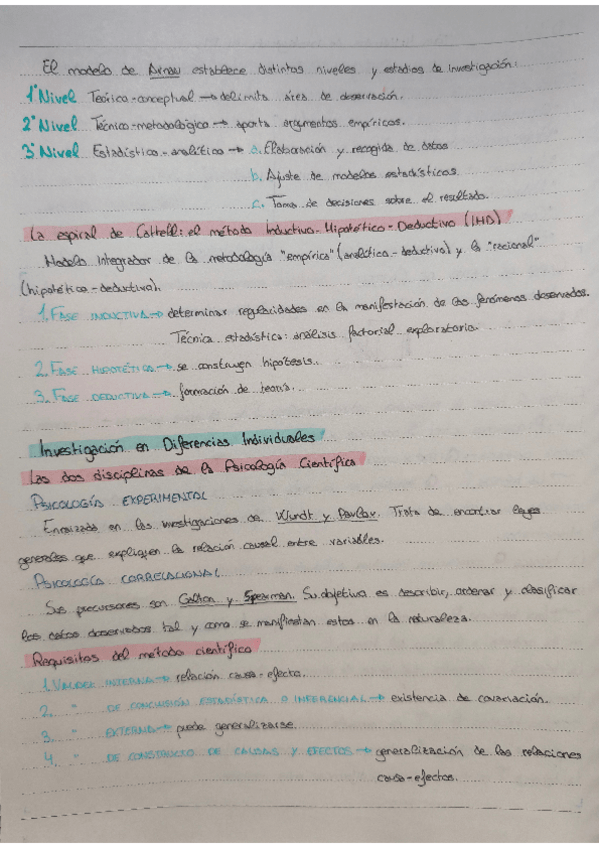 El modelo de Arnau establece distintos niveles y estadios de investigación:
1º Nivel Teórico-conceptual → delimita área de observación.
2º Nivel Técnico-metodológico → aporta argumentos empíricos.
3º Nivel Estadístico-analítico → a. Elaboración y recogida de datos
b. Ajuste de modelos estadísticos.
c. Toma de decisiones sobre el resultado.
La espiral de Cattell: el método Inductivo-Hipotético-Deductivo (IHD)
Modelo integrador de la metodología "empírica" (analítica-deductiva) y la "racional"
(hipotético-deductiva).
1. FASE INDUCTIVA → determinar regularidades en la manifestación de los fenómenos observados.
Técnica estadística: análisis factorial exploratorio.
2. FASE HIPOTÉTICA → se construyen hipótesis.
3. FASE DEDUCTIVA → formación de teoría.
Investigación en Diferencias Individuales
Las dos disciplinas de la Psicología Científica
PSICOLOGÍA EXPERIMENTAL
Enraizada en las investigaciones de Wundt y Pavlov. Trata de encontrar leyes
generales que expliquen la relación causal entre variables.
PSICOLOGÍA CORRELACIONAL
Sus precursores son Galton y Spearman. Su objetivo es describir, ordenar y clasificar
los datos observados tal y como se manifiestan estos en la naturaleza.
Requisitos del método científico
1. VALIDEZ INTERNA → relación causa-efecto.
2. " DE CONCLUSIÓN ESTADÍSTICA O INFERENCIAL → existencia de covariación.
3. " EXTERNA → puede generalizarse.
4. " DE CONSTRUCTO DE CAUSAS Y EFECTOS → generalización de las relaciones
causa-efectos.